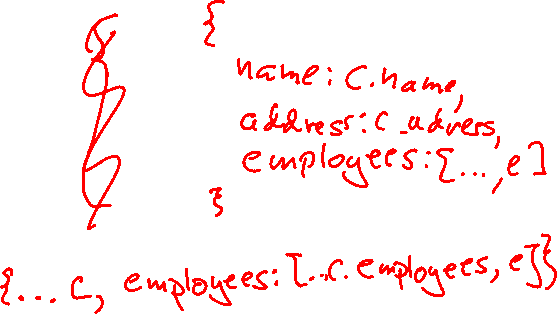 {
name: c.name,
address: c.adress,
employees: [...,e]
}
{... c, employees: [...c.employees, e]}